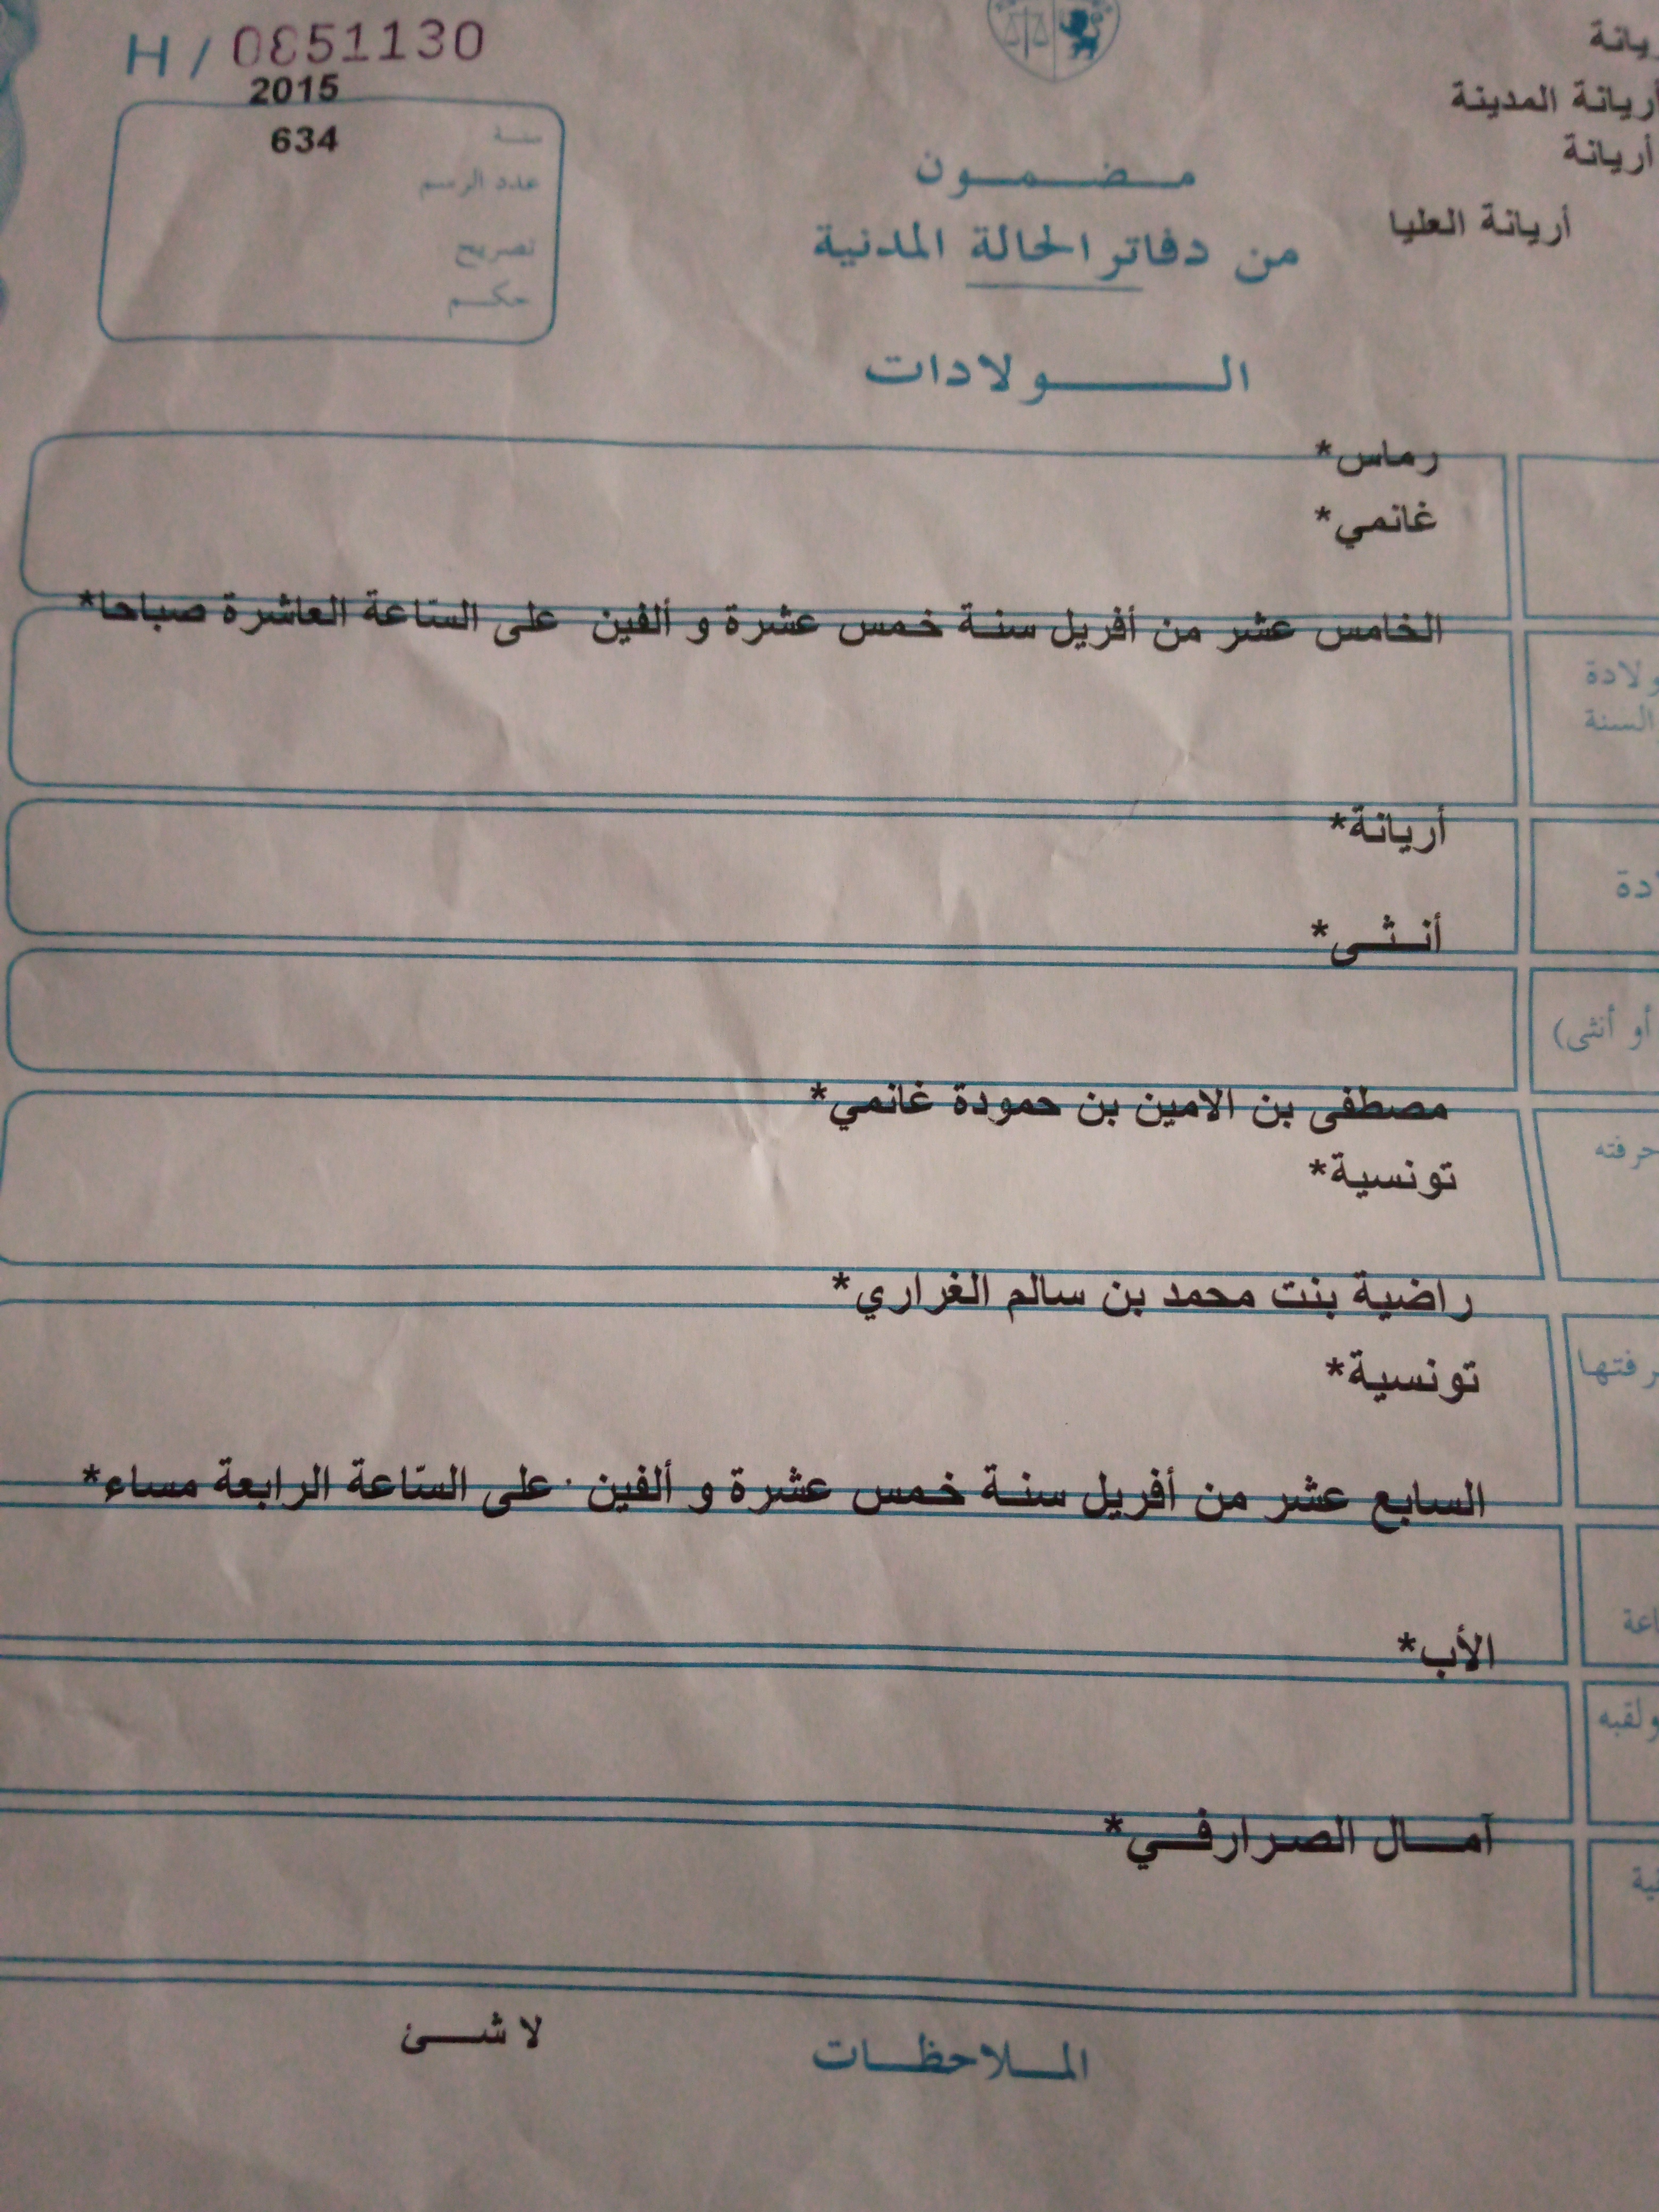 H / 0851130
2015
634
سنة
عدد الرسم
تصريح
حكم
أريانة المدينة
أريانة
أريانة العليا
مضمون
من دفاتر الحالة المدنية
الولادات
رماس*
غانمي*
الخامس عشر من أفريل سنة خمس عشرة و ألفين على السّاعة العاشرة صباحا*
ولادة
السنة
أريانة*
أنثى*
أو أنثى)
مصطفى بن الامين بن حمودة غانمي*
حرفته
تونسية*
راضية بنت محمد بن سالم الغراري*
تونسية*
السابع عشر من أفريل سنة خمس عشرة و ألفين على السّاعة الرابعة مساء*
الأب*
ولقبه
آمال الصرارفي*
الملاحظات
لا شئ